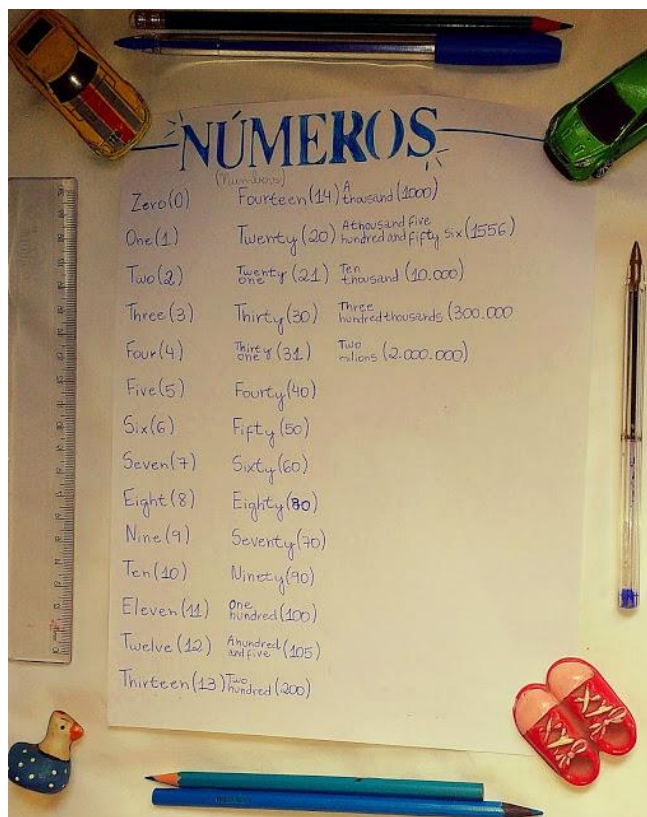 NÚMEROS
(Numbers)
Zero (0)
One (1)
Two (2)
Three (3)
Four (4)
Five (5)
Six (6)
Seven (7)
Eight (8)
Nine (9)
Ten (10)
Eleven (11)
Twelve (12)
Thirteen (13)
Fourteen (14)
Twenty (20)
Twenty
one (21)
Thirty (30)
Thirty
one (31)
Fourty (40)
Fifty (50)
Sixty (60)
Eighty (80)
Seventy (70)
Ninety (90)
One
hundred (100)
A hundred
and five (105)
Two
hundred (200)
A
thousand (1000)
A thousand five
hundred and fifty six (1556)
Ten
thousand (10.000)
Three
hundred thousands (300.000
Two
milions (2.000.000)